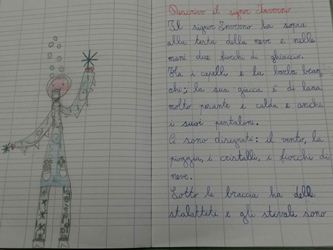 Descrivo il signor Inverno
Il signor Inverno ha sopra
alla testa della neve e nelle
mani due fiocchi di ghiaccio.
Ha i capelli e la barba bian
chi; la sua giacca è di lana
molto pesante e calda e anche
i suoi pantaloni.
Ci sono disegnati: il vento, la
pioggia, i cristalli, i fiocchi di
neve.
Sotto le braccia ha delle
stalattiti e gli stivali sono